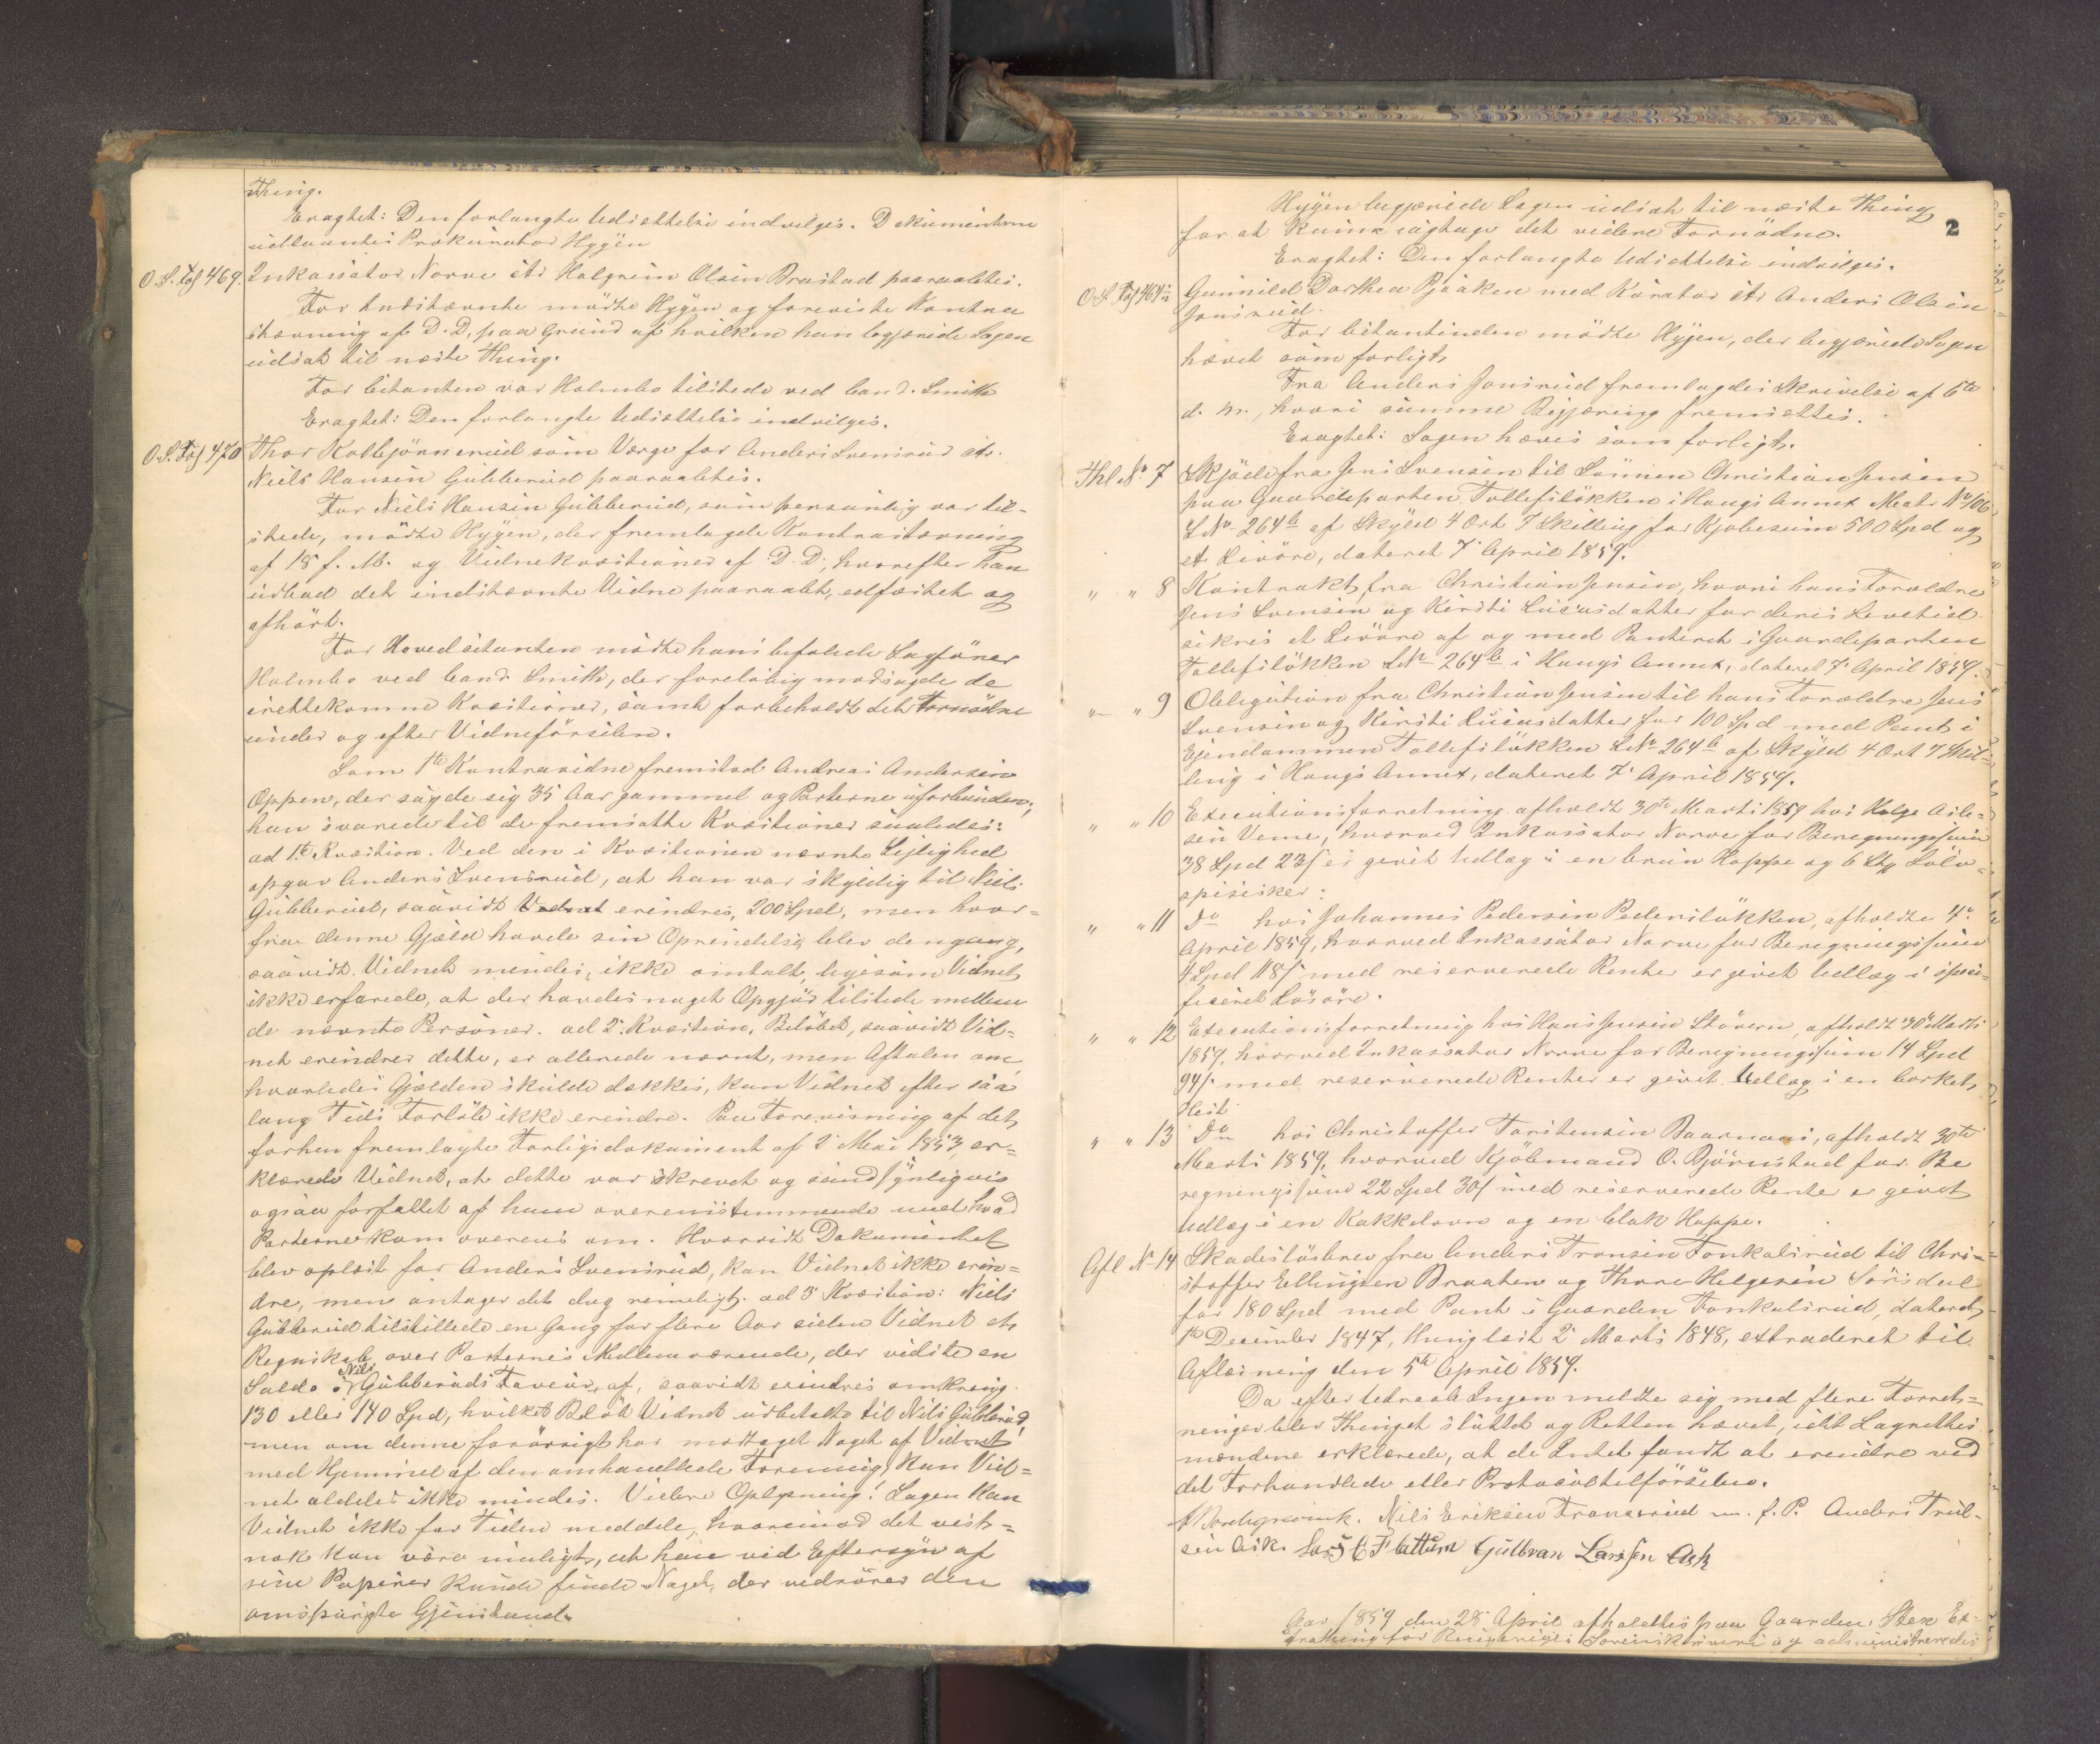 Thing.
Eragtet: Den forlangte Udsættelse indvilges. Dokumenterne
udlaantes Prokurator Hÿÿen
O. S. Fol 469. Inkassator Norve ctr Halgrim Olsen Brustad paaraabtes.
For Indstævnte mödte Hÿÿen og foreviste Kontra
stævning af D. D, paa Grund af hvilken han begjærede Sagen
udsat til næste Thing.
For Citanten var Holmbo tilstede ved Cand. Smith
Eragtet: Den forlangte Udsættelse indvilges.
O. S. Fol 470 Thor Kolbjörnsrud som Værge for Anders Svensrud ctr.
Niels Hansen Gubberud paaraabtes.
For Niels Hansen Gubberud, som personlig var til-
stede, mödte Hÿÿen, der fremlagde Kontrastævning
af 18 f. M. og Vidnekvæstioner af D. D, hvorefter han
udbad det indstævnte Vidne paaraabt, edfæstet og
afhört.
For Hovedcitanten mödte hans befalede Sagförer
Holmbo ved Cand. Smith, der forelöbig modsagde de
irettekomne Kvæstioner, samt forbeholdt det Fornödne
under og efter Vidneförselen.
Som 1te Kontravidne fremstod Andreas Andersen
Oppen, der sagde sig 35 Aar gammel og Parterne uforbunden;
han svarede til de fremsatte Kvæstioner saaledes:
ad 1te Kvæstion. Ved den i Kvæstionen nævnte Leilighed
opgav Anders Svensrud, at han var skÿldig til Niels
Gubberud, saavidt Vidnet erindres, 200 Spd, men hvor=
fra denne Gjæld havde sin Oprindelse, blev dengang,
saavidt Vidnet mindes, ikke omtalt, ligesom Vidnet
ikke erfarede, at der havdes noget Opgjör tilstede mellem
de nævnte Personer. ad 2. Kvæstion, Belöbet, saavidt Vid=
net erindrer dette, er allerede nævnt, men Aftalen om
hvorledes Gjælden skulde dækkes, kan Vidnet efter saa
lang Tids Forlöb ikke erindre. Paa Forevisning af det
forhen fremlagte Forligsdokument af 2 Mai 1853, er=
klærede Vidnet, at dette var skrevet og sandsÿnligvis
ogsaa forfattet af ham overensstemmende med hvad
Parterne kom overens om. Hvorvidt Dokumentet
blev oplæst for Anders Svensrud, kan Vidnet ikke erin=
dre, men antager det dog rimeligt. ad 3 Kvæstion: Niels
Gubberud tilstillede en Gang for flere Aar siden Vidnet et
Regnskab over Parternes Mellemværende, der vidste en
Saldo i Nils Gubberuds Faveur, af, saavidt erindres omkring
130 eller 140 Spd, hvilket Belöb Vidnet udbetalte til Nils Gubberud,
men om denne forövrigt har modtaget Noget af Vidnet
med Hjemmel af den omhandlede Forening, kan Vid=
net aldeles ikke mindes. Videre Oplÿsning i Sagen kan
Vidnet ikke for Tiden meddele, hvorimod det vist=
nok kan være muligt, at han ved Eftersÿn af
sine Papirer kunde finde Noget, der vedrörer den
omspurgte Gjenstand.
2
Hÿÿen begjærede Sagen udsat til næste Thing
for at kunne iagttage det videre Fornödne.
Eragtet: Den forlangte Udsættelse indvilges.
O. S. Fol 464 Gunnild Dorthea Bjaaken med Kurator ctr Anders Olsen
Jonsrud.
For Citantinden mödte Hÿÿen, der begjærede Sagen
hævet som forligt.
Fra Anders Jonsrud fremlagdes Skrivelse af 6te
d. M., hvori samme Begjæring fremsættes.
Eragtet: Sagen hæves som forligt.
Thl. No 7 Skjöde fra Jens Svensen til Sönnen Christian Jensen
paa Gaardeparten Tollefslökken i Haugs Annex Matr No 106
LNo 264b af Skÿld 4 Ort 7 Skilling for Kjöbesum 500 Spd og
et Livöre, dateret 7 April 1859.
" " 8 Kontrakt fra Christian Jensen, hvori hans Forældre
Jens Svensen og Kirsti Lucasdatter for deres Levetid
sikres et Livöre af og med Panteret i Gaardeparten
Tollefslökken LNo 264b i Haugs Annex, dateret 7 April 1859.
" " 9 Obligation fra Christian Jensen til hans Forældre Jens
Svensen og Kirsti Lucasdatter for 100 Spd med Pant i
Ejendommen Tollefslökken LNo 264b af Skÿld 4 Ort 7 Skil=
ling i Haugs Annex, dateret 7 April 1859.
" " 10 Executionsforretning afholdt 30te Marts 1859 hos Helge Asle=
sen Veme, hvorved Inkassator Norve for Beregningssum
38 Spd 23ſ er givet Udlæg i en brun Hoppe og 6 Stk Sölv=
spiseskeer.
" " 11 Do hos Johannes Pedersen Pederslökken, afholdte 4de
April 1859, hvorved Inkassator Norve for Beregningssum
4 Spd 118ſ med reserverede Renter er givet Udlæg i speci=
ficeret Lösöre.
" " 12 Executionsforretning hos Hans Jensen Stövern, afholdt 30te Marts
1859, hvorved Inkassator Norve for Beregningssum 14 Spd
94ſ med reserverede Renter er givet Udlæg i en borket
Hest
" " 13 Do hos Christoffer Torstensen Baarnaas, afholdt 30te
Marts 1859, hvorved Kjöbmand O. Björnstad for Be
regningssum 22 Spd 30ſ med reserverede Renter er givet
Udlæg i en Kakkelovn og en blak Hoppe.
Afl No 14 Skadeslösbrev fra Anders Tronsen Fonkalsrud til Chri=
stoffer Ellingsen Braaten og Thore Helgesen Sörsdal
for 180 Spd med Pant i Gaarden Fonkalsrud, dateret
1te December 1847, thinglæst 2 Marts 1848, extraderet til
Aflæsning den 5te April 1859.
Da efter Udraab Ingen meldte sig med flere Forret=
ninger blev Thinget sluttet og Retten hævet, idet Lagrettes
mændene erklærede, at de Intet fandt at erindre ved
det Forhandlede eller Protocoltilförselen.
Nils Eriksen Transrud m. f. P. Anders Trul-
sen Ask. Lars C Flattum Gulbran Larssen Ask
Aar 1859 den 28 April afholdtes paa Gaarden Steen Ex-
trathing for Ringeriges Sorenskriveri og administreredes